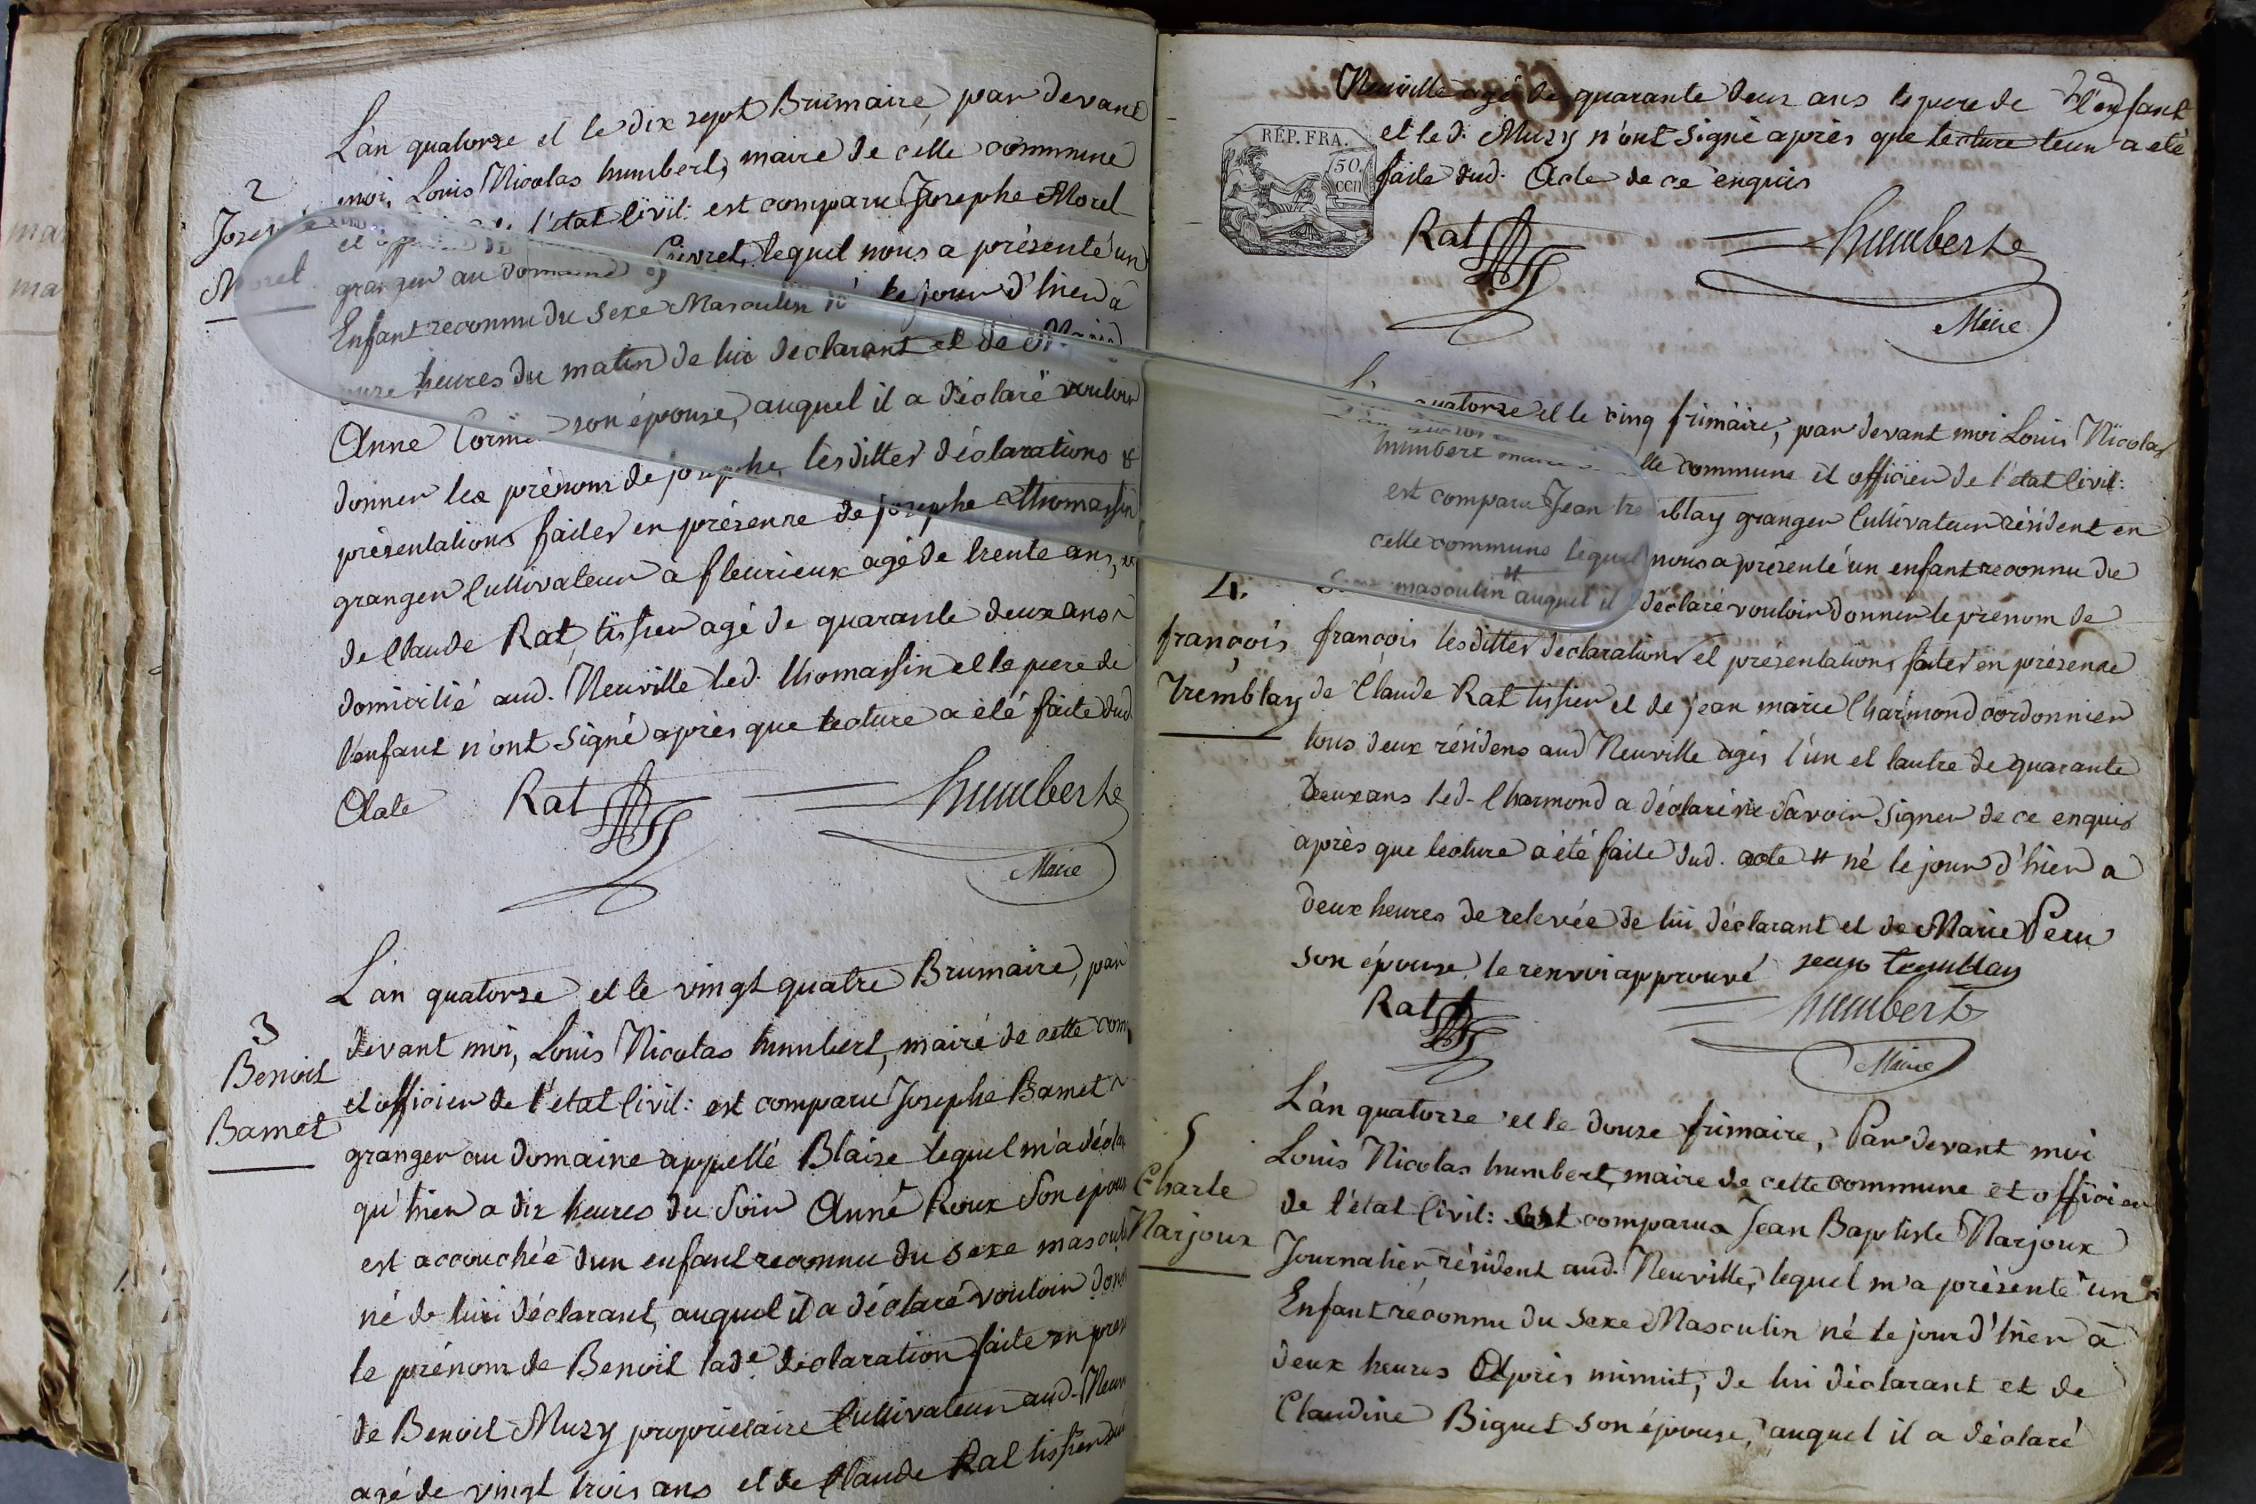 L'an quatorze et le dix sept Brumaire, par devant
moi, Louis Nicolas humbert, maire de cette commune
et officier de l'état Civil: est comparu Josephe Morel
granger au domaine Livret, lequel nous a présenté un
Enfant reconnu du sexe Masculin né le jour d'hier à
onze heures du matin de lui déclarant et de Marie
Anne son épouse, auquel il a déclaré vouloir
donner les prénom de josephe, lesdittes déclarations &
présentations faites en présence de josephe thomassin
granger Cultivateur à fleurieux agé de trente ans, et
de Claude Rat, tissier agé de quarante deux ans
domicilié aud. Neuville led. thomassin et le pere de
l'enfant n'ont signé après que lecture a été faite dud
Acte
Rat
humbert
Maire
2
Josephe
Morel
L'an quatorze et le vingt quatre Brumaire, par
devant moi, Louis Nicolas humbert, maire de cette com
et officier de l'état Civil: est comparu Josephe Bamet
granger au domaine appellé Blaise lequel m'a décla
qu'hier a dix heures du soir Anne Roux son épou
est accouchée d'un enfant reconnu du sexe mascul
né de lui déclarant, auquel il a déclaré vouloir don
le prénom de Benoit lade. déclaration faite en pres
de Benoit Muzy proprietaire Cultivateur aud. Neuv
agé de vingt trois ans et de Claude Rat tissier
3
Benoit
Bamet
Neuville agé de quarante deux ans le pere de l'enfant
et led. Muzy n'ont signé après que lecture leur a été
faite dud. Acte de ce enquis
RÉP. FRA.
50.
cen
Rat
humbert
Maire
L'an quatorze et le cinq frimaire, par devant moi Louis Nicolas
humbert maire de cette commune et officier de l'état Civil:
est comparu Jean tremblay granger Cultivateur résident en
cette commune lequel nous a présenté un enfant reconnu du
sexe masculin # auquel il a déclaré vouloir donner le prenom de
françois lesdittes declarations et présentations faites en présence
de Claude Rat tissier et de jean marie Charmond cordonnier
tous deux résidens aud Neuville agés l'un et l'autre de quarante
deux ans led. Charmond a déclaré ne Savoir signer de ce enquis
après que lecture a été faite dud. acte # né le jour d'hier a
deux heures de relevée de lui déclarant et de Marie Peru
son épouse, le renvoi approuvé jean tremblay
Rat
humbert
Maire
4.
françois
Tremblay
L'an quatorze et le douze frimaire, Par devant moi
Louis Nicolas humbert, maire de cette commune et officier
de l'état Civil: est comparu Jean Baptiste Narjoux
Journalier résident aud. Neuville, lequel m'a présenté un
Enfant réconnu du sexe Masculin né le jour d'hier à
deux heures Après minuit, de lui déclarant et de
Claudine Biguet son épouse, auquel il a déclaré
5
Charle
Narjoux